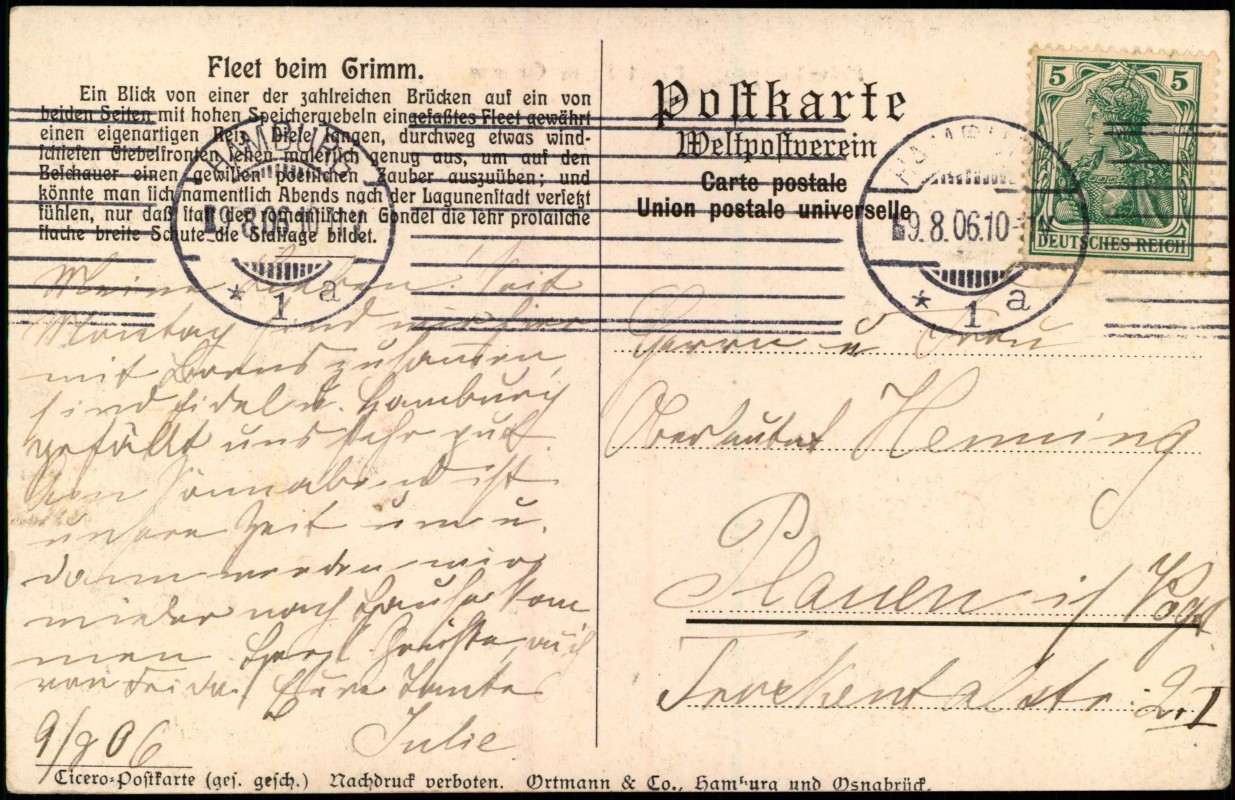 Fleet beim Grimm.
Ein Blick von einer der zahlreichen Brücken auf ein von
beiden Seiten mit hohen Speichergiebeln eingefaßtes Fleet gewährt
einen eigenartigen Reiz. Diese langen, durchweg etwas wind-
schiefen Giebelfronten sehen malerisch genug aus, um auf den
Beschauer einen gewissen poetischen Zauber auszuüben; und
könnte man sich namentlich Abends nach der Lagunenstadt versetzt
fühlen, nur daß statt der romantischen Gondel die sehr prosaische
flache breite Schute die Staffage bildet.
Meine Lieben! Seit
Montag sind wir hier
mit zusammen,
sind fidel u. Hamburg
gefällt uns sehr gut.
Den Sonnabend ist
unsere Zeit um u.
dann werden wir
wieder nach Hause kom
men. Herzl. Grüsse, auch
von Frida. Eure Tante
Julie
9/8 06
Postkarte
Weltpostverein
Carte postale
Union postale universelle
HAMBURG
9.8.06.10-11V
* 1 a
HAMBURG
9.8.06.10-11V
* 1 a
5 5
DEUTSCHES REICH
Herrn u Frau
Henning
Plauen i/ Vogt
Trockentalstr. 2. I
Cicero-Postkarte (ges. gesch.) Nachdruck verboten. Ortmann & Co., Hamburg und Osnabrück.